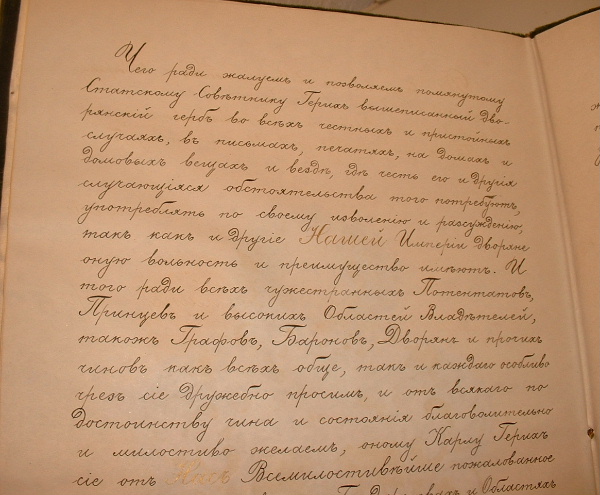 Чего ради жалуемъ и позволяемъ помянутому
Статскому Совѣтнику Герихъ вышеписанный дво-
рянскій гербъ во всѣхъ честныхъ и пристойныхъ
случаяхъ, въ письмахъ, печатяхъ, на домахъ и
домовыхъ вещахъ и вездѣ, гдѣ честь его и другія
случающіяся обстоятельства того потребуютъ,
употреблять по своему изволенію и разсужденію,
такъ какъ и другіе Нашей Имперіи дворяне
оную вольность и преимущество имѣютъ. И
того ради всѣхъ чужестранныхъ Потентатовъ,
Принцевъ и высокихъ Областей Владѣтелей,
такожъ Графовъ, Бароновъ, Дворянъ и прочихъ
чиновъ какъ всѣхъ обще, такъ и каждаго особливо
чрезъ сіе дружебно просимъ, и отъ всякаго по
достоинству чина и состоянія благоволительно
и милостиво желаемъ, оному Карлу Герихъ
сіе отъ Насъ Всемилостивѣйше пожалованное
Областяхъ